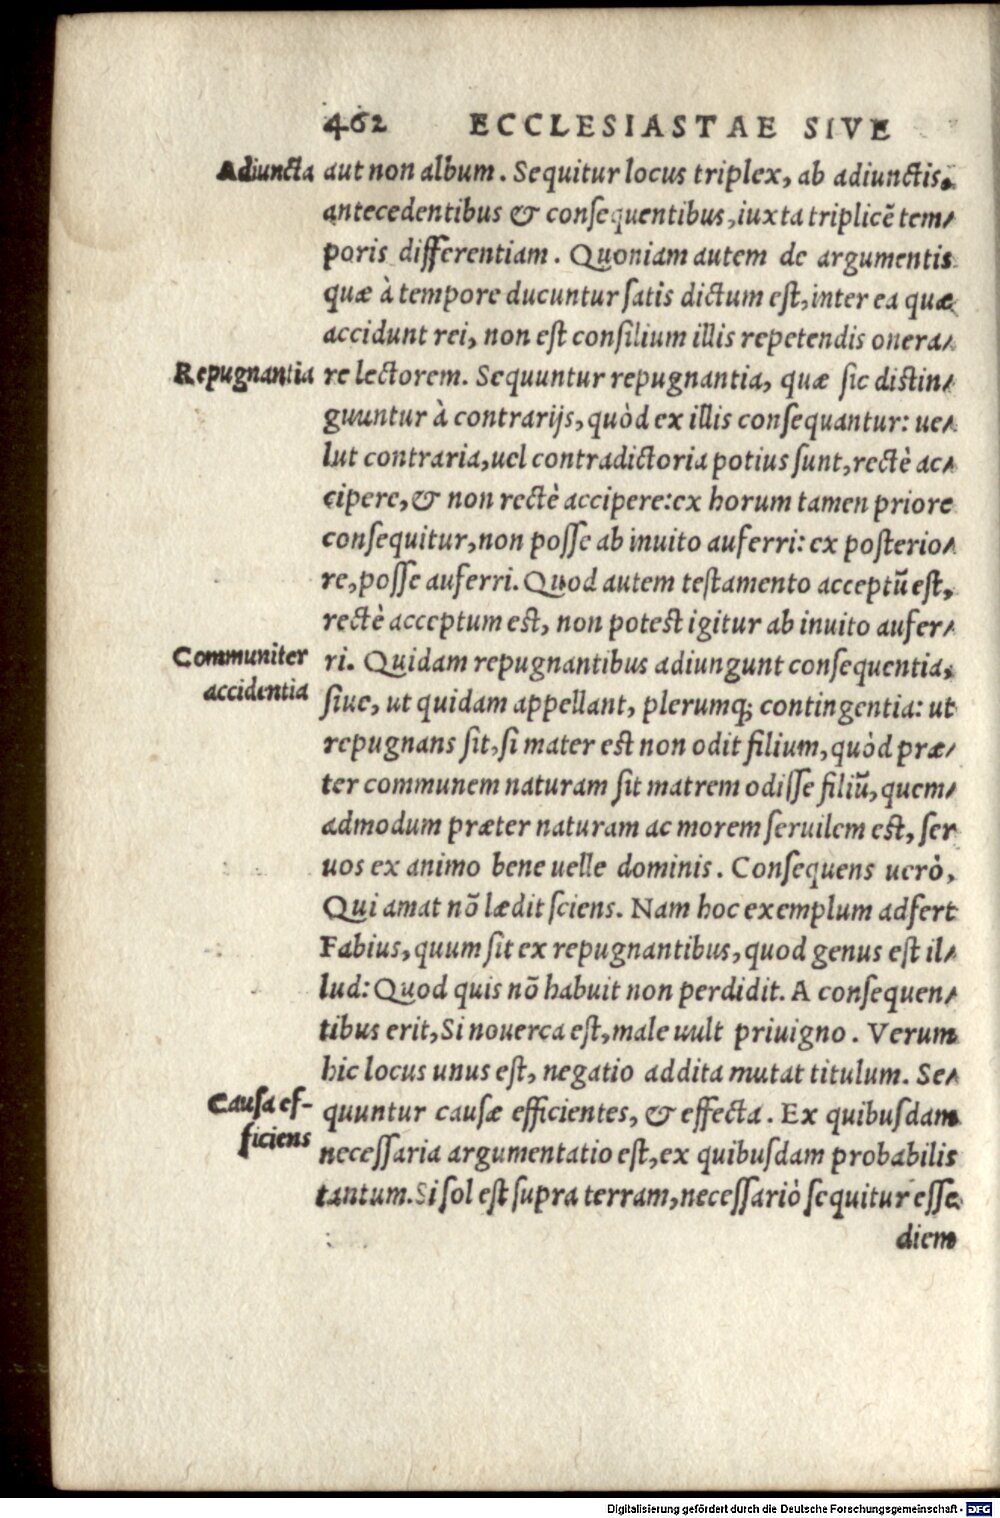 462 ECCLESIASTAE SIVE
Adiuncta aut non album. Sequitur locus triplex, ab adiunctis,
antecedentibus & consequentibus, iuxta triplicẽ tem⸗
poris differentiam. Quoniam autem de argumentis
quæ à tempore ducuntur satis dictum est, inter ea quæ
accidunt rei, non est consilium illis repetendis onera⸗
Repugnantia re lectorem. Sequuntur repugnantia, quæ sic distin⸗
guuntur à contrarijs, quòd ex illis consequantur: ue⸗
lut contraria, uel contradictoria potius sunt, rectè ac⸗
cipere, & non rectè accipere: ex horum tamen priore
consequitur, non posse ab inuito auferri: ex posterio⸗
re, posse auferri. Quod autem testamento acceptũ est,
rectè acceptum est, non potest igitur ab inuito aufer⸗
Communiter ri. Quidam repugnantibus adiungunt consequentia,
accidentia siue, ut quidam appellant, plerumq; contingentia: ut
repugnans sit, si mater est non odit filium, quòd præ⸗
ter communem naturam sit matrem odisse filiũ, quem⸗
admodum præter naturam ac morem seruilem est, ser
uos ex animo bene uelle dominis. Consequens uerò,
Qui amat nõ lædit sciens. Nam hoc exemplum adfert
Fabius, quum sit ex repugnantibus, quod genus est il⸗
lud: Quod quis nõ habuit non perdidit. A consequen⸗
tibus erit, Si nouerca est, male uult priuigno. Verum
hic locus unus est, negatio addita mutat titulum. Se⸗
Causa ef- quuntur causæ efficientes, & effecta. Ex quibusdam
ficiens necessaria argumentatio est, ex quibusdam probabilis
tantum. Si sol est supra terram, necessariò sequitur esse
diem
Digitalisierung gefördert durch die Deutsche Forschungsgemeinschaft - DFG